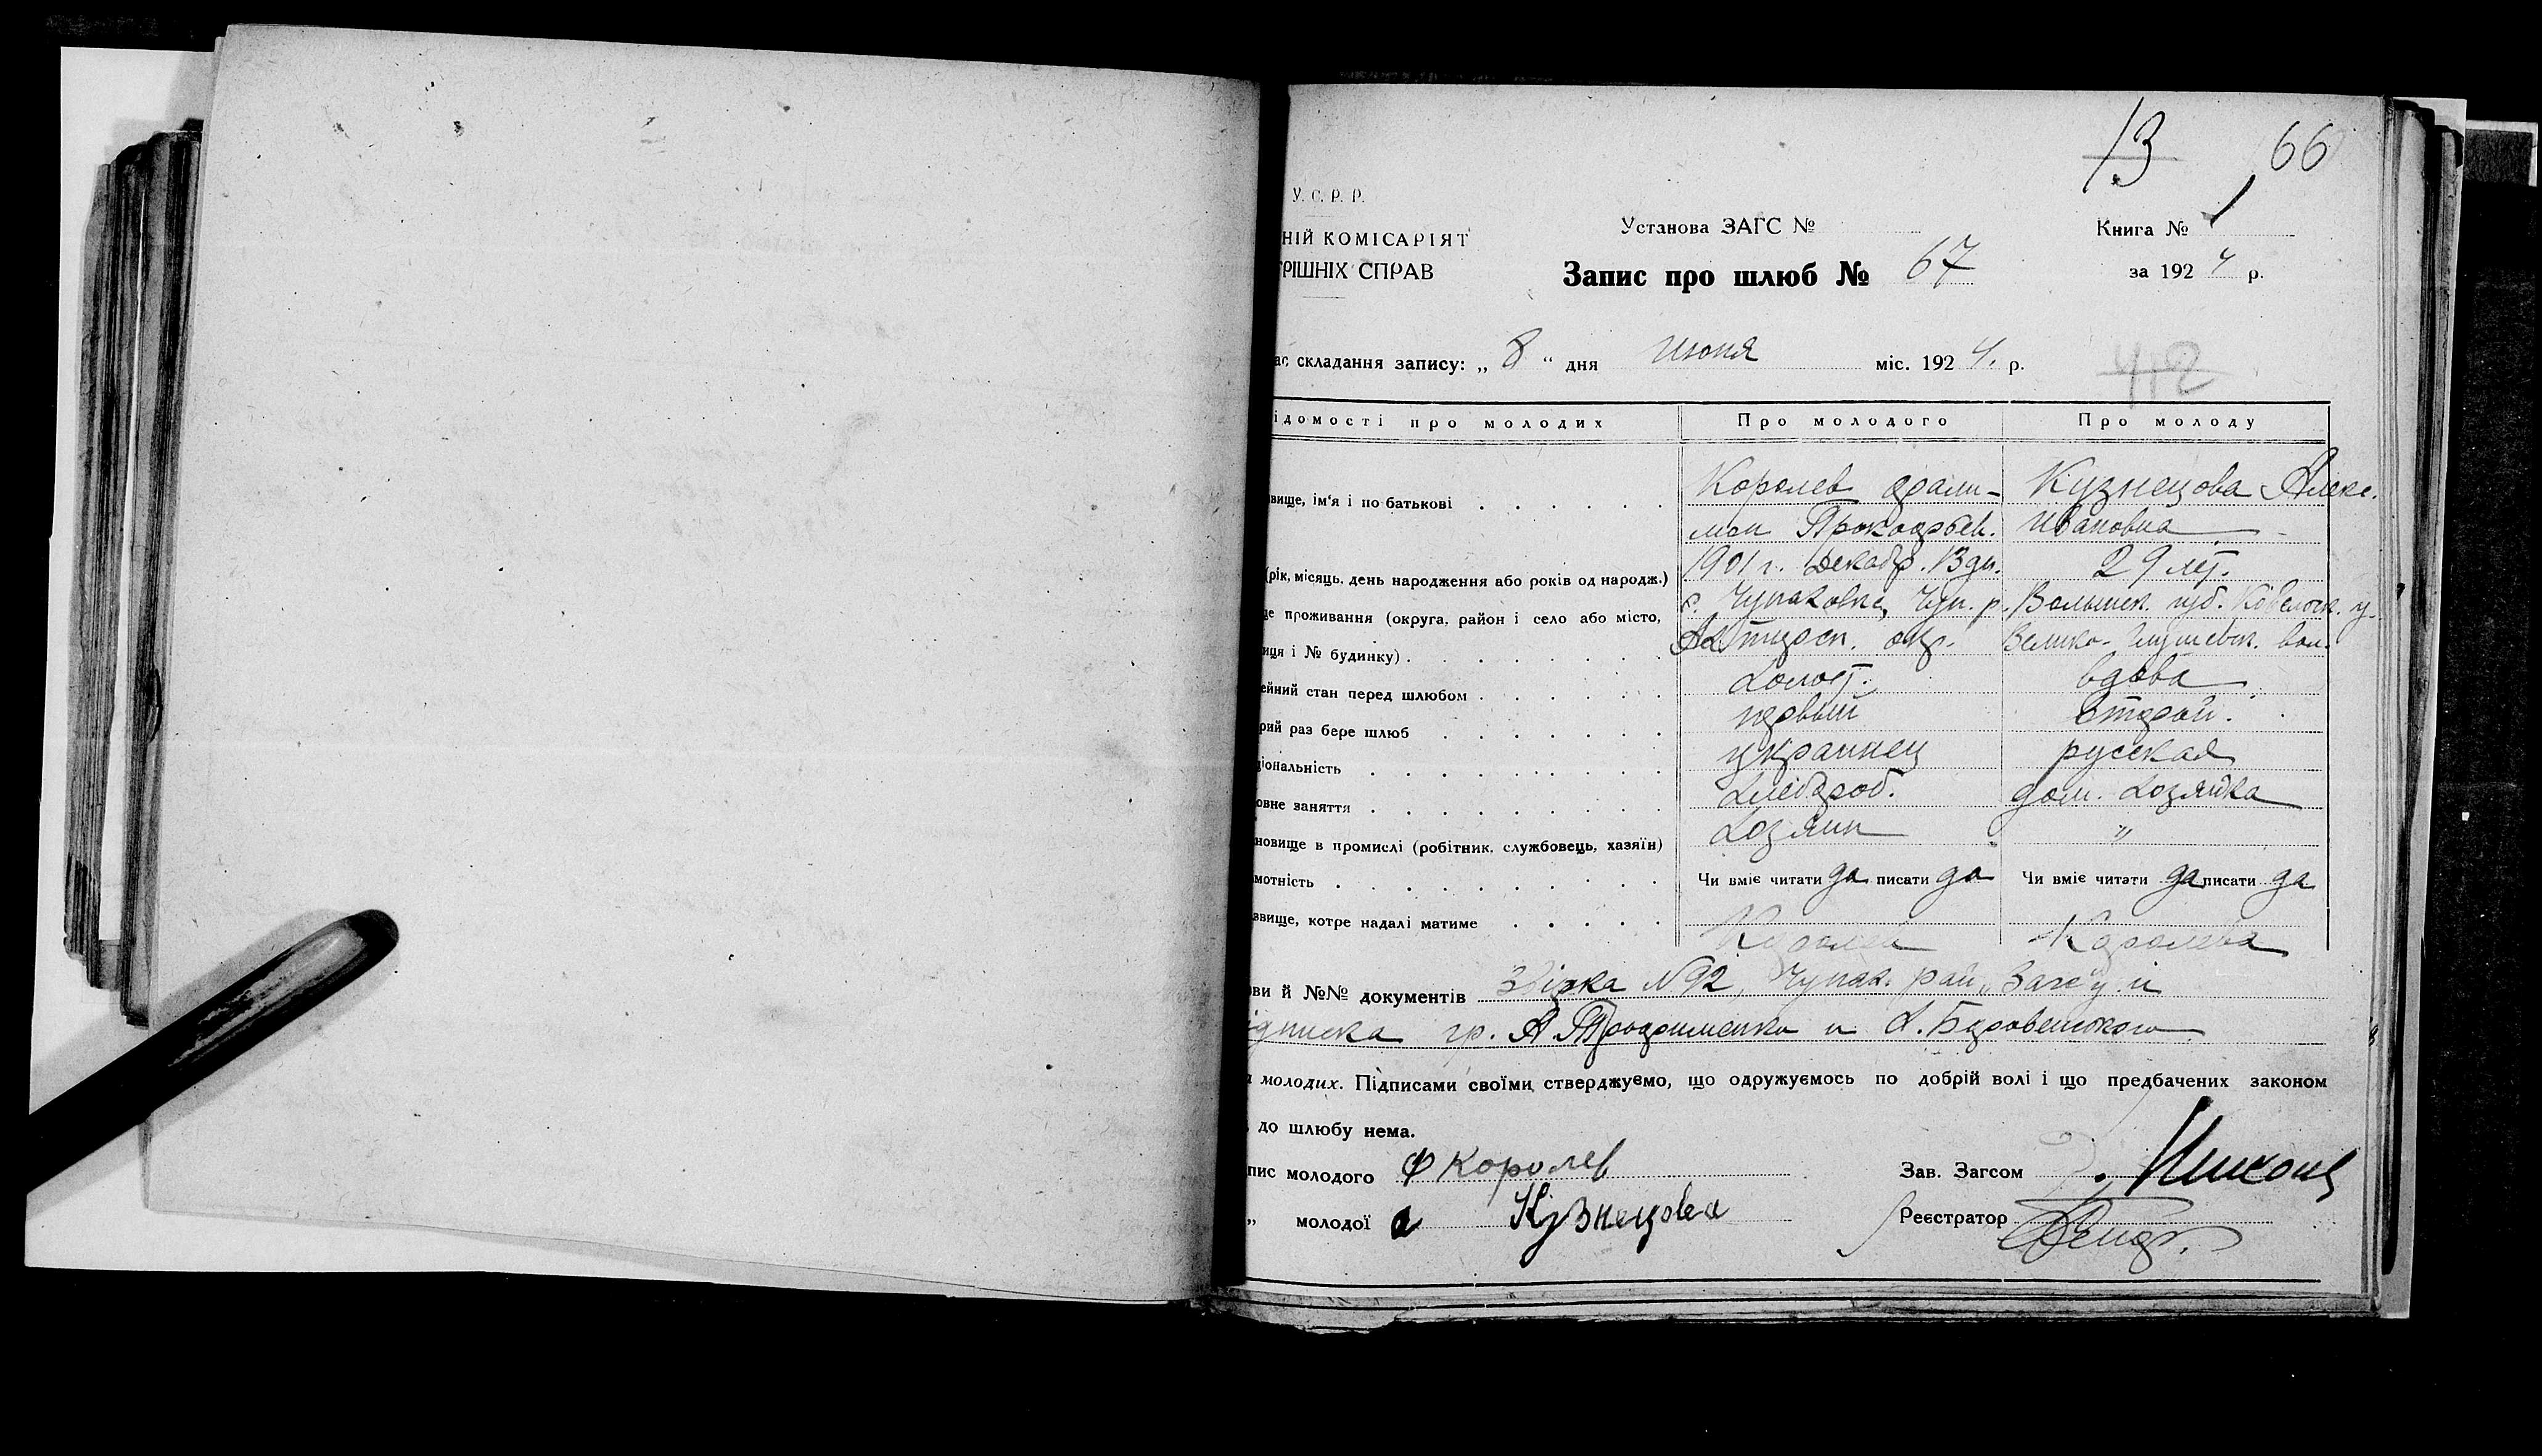 13 66
У. С. Р. Р.
Установа ЗАГС № Книга № 1
НІЙ КОМІСАРІЯТ
РІШНІХ СПРАВ
Запис про шлюб № 67
за 1924 р.
ас складання запису: „ 8 “ дня июня міс. 1924. р.
412
ідомості про молодих Про молодого Про молоду
вище, ім'я і по батькові Королев Кузнецова Алекс.
Прокофьев. Ивановна
(рік, місяць, день народження або років од народж.) 1901 г. Декабр. 13 дн. 29 лет.
це проживання (округа, район і село або місто, с. Чупаховка, Чуп. р. Волынск. губ. Ковельск. у.
иця і № будинку) Ахтырск. окр. Велико-Глушевск. вол.
ейний стан перед шлюбом Холост. вдова
рий раз бере шлюб первый второй.
ціональність украинец русская
овне заняття Хлебороб. дом. хозяйка
новище в промислі (робітник, службовець, хазяїн) Хозяин „
мотність Чи вміє читати да писати да Чи вміє читати да писати да
звище, котре надалі матиме Королев Королева
ви й №№ документів № 92, Чупах. рай. Загс'у и
ідписка гр. А. Трофименко и
молодих. Підписами своїми стверджуємо, що одружуємось по добрій волі і що предбачених законом
до шлюбу нема.
пис молодого Ф Королев Зав. Загсом
„ молодої а Кузнецова Реєстратор